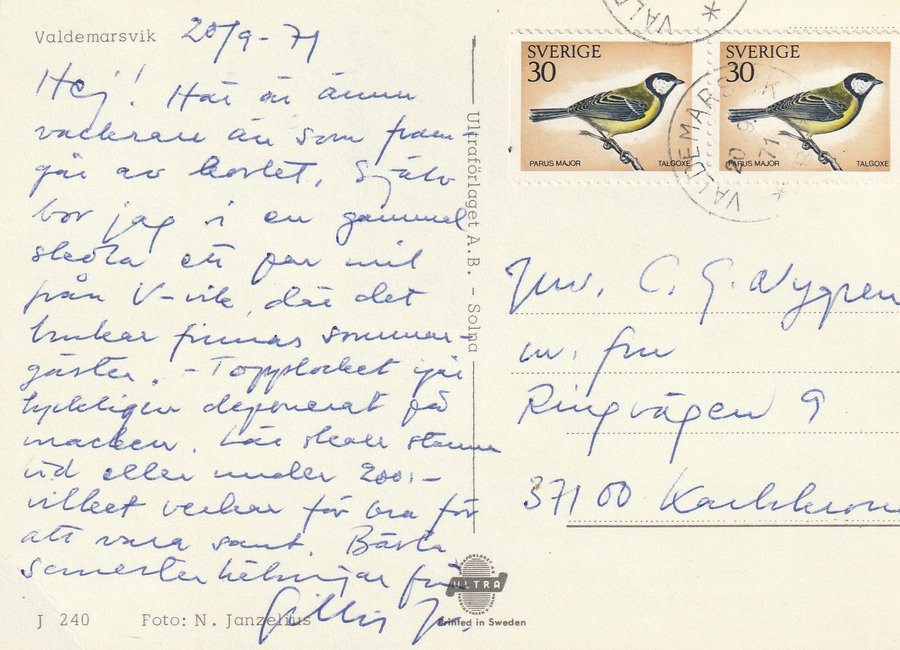 Valdemarsvik 20/9-71
Hej! Här är ännu
vackrare än som fram-
går av kortet. Själv
bor jag i en gammal
skola ett par mil
från V-vik, där det
brukar finnas sommar-
gäster. - Topplocket igår
lyckligen deponerat på
macken. Lär skola stanna
vid eller under 200:-
vilket verkar för bra för
att vara sant. Bästa
semesterhälsningar från
Gillis
J 240 Foto: N. Janzelius
Ultraförlaget A.B. - Solna
ULTRA
Printed in Sweden
SVERIGE
30
PARUS MAJOR TALGOXE
SVERIGE
30
PARUS MAJOR TALGOXE
VALD
VALDEMARSVIK
20 9
71
C. G. Nygren
m. fru
Ringvägen 9
371 00 Karlskrona